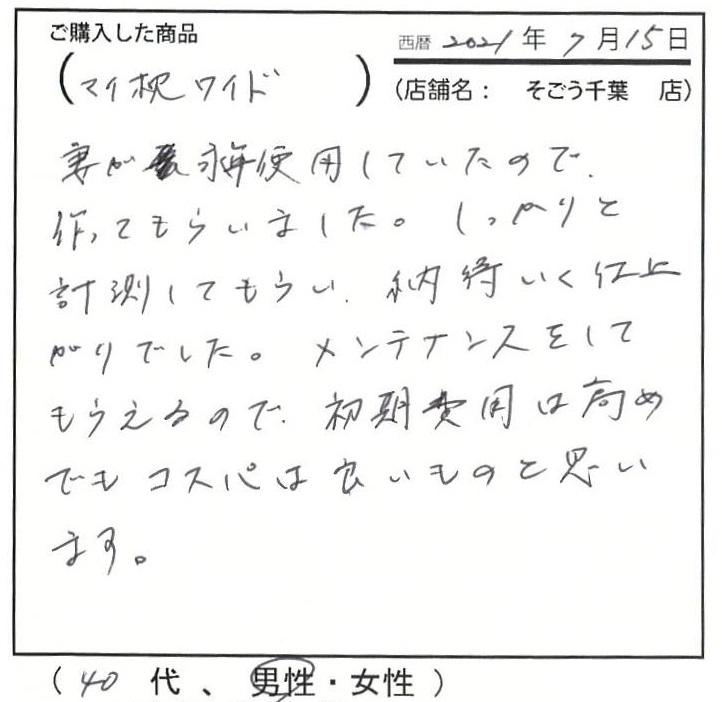 ご購入した商品
西暦 2021年 7月15日
(マイ枕ワイド)
(店舗名: そごう千葉 店)
妻が永年使用していたので、
作ってもらいました。しっかりと
計測してもらい、納得いく仕上
がりでした。メンテナンスをして
もらえるので、初期費用は高め
でもコスパは良いものと思い
ます。
(40 代、男性・女性)